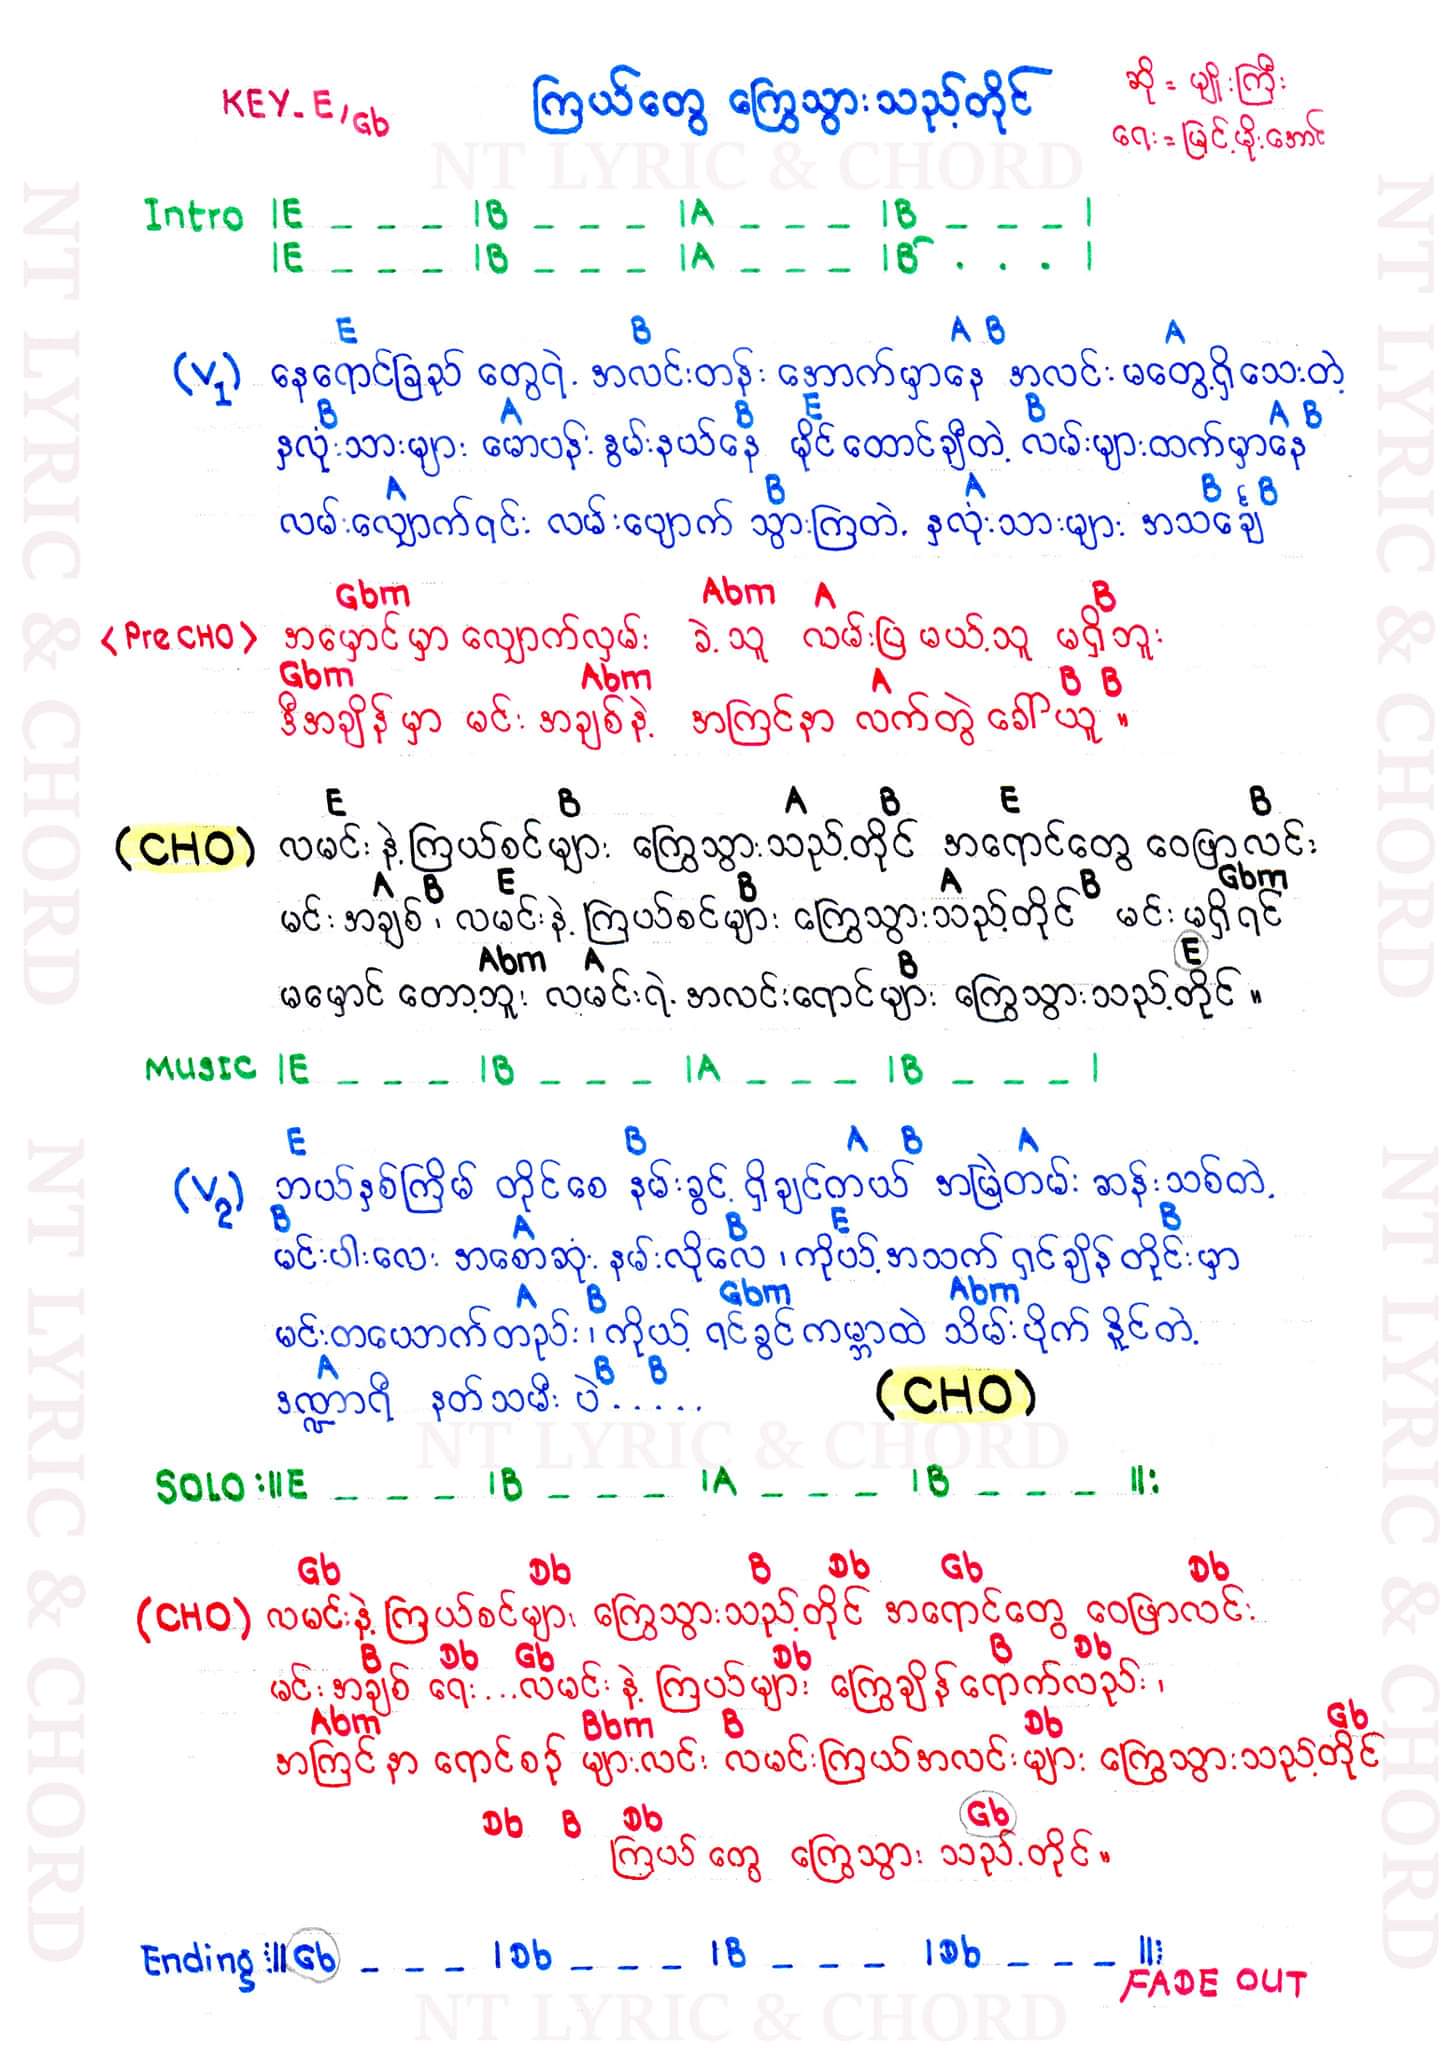 KEY- E/Gb
ကြယ်တွေ ကြွေသွားသည့်တိုင်
ဆို = မျိုးကြီး
ရေး = မြင့်မိုးအောင်
NT LYRIC & CHORD
Intro |E _ _ _ |B _ _ _ |A _ _ _ |B _ _ _ |
|E _ _ _ |B _ _ _ |A _ _ _ |B . . . |
E B A B A
(V1) နေရောင်ခြည် တွေရဲ့ အလင်းတန်း အောက်မှာနေ အလင်းမတွေ့ရှိသေးတဲ့
B A B E B A B
နှလုံးသားများ မောပန်းနွမ်းနယ်နေ မိုင်ထောင်ချီတဲ့ လမ်းများထက်မှာနေ
A B A B B
လမ်းလျှောက်ရင်း လမ်းပျောက် သွားကြတဲ့ နှလုံးသားများ အသချေ်
Gbm Abm A B
<Pre CHO> အမှောင်မှာ လျှောက်လှမ်း ခဲ့သူ လမ်းပြမယ့်သူ မရှိဘူး
Gbm Abm A B B
ဒီအချိန်မှာ မင်းအချစ်နဲ့ အကြင်နာ လက်တွဲခေါ်ယူ။
E B A B E B
(CHO) လမင်းနဲ့ကြယ်စင်များ ကြွေသွားသည့်တိုင် အရောင်တွေ ဝေဖြာလင်း
A B E B A B Gbm
မင်းအချစ်၊ လမင်းနဲ့ ကြယ်စင်များ ကြွေသွားသည့်တိုင် မင်းမရှိရင်
Abm A B E
မမှောင်တော့ဘူး လမင်းရဲ့အလင်းရောင်များ ကြွေသွားသည့်တိုင်။
MUSIC |E _ _ _ |B _ _ _ |A _ _ _ |B _ _ _ |
E B A B A
(V2) ဘယ်နှစ်ကြိမ် တိုင်စေ နမ်းခွင့်ရှိချင်တယ် အမြဲတမ်း ဆန်းသစ်တဲ့
B A B E B
မင်းပါးလေး အစောဆုံးနမ်းလိုလေ၊ ကိုယ့်အသက် ရှင်ချိန်တိုင်းမှာ
A B Gbm Abm
မင်းတယောက်တည်း၊ ကိုယ့် ရင်ခွင်ကမ္ဘာထဲ သိမ်းပိုက်နိုင်တဲ့
A B B
ဒဏ္ဍာရီ နတ်သမီးပဲ.....
(CHO)
NT LYRIC & CHORD
SOLO :||E _ _ _ |B _ _ _ |A _ _ _ |B _ _ _ ||:
Gb Db B Db Gb Db
(CHO) လမင်းနဲ့ကြယ်စင်များ ကြွေသွားသည့်တိုင် အရောင်တွေ ဝေဖြာလင်း
B Db Gb Db B Db
မင်းအချစ်ရေး...လမင်းနဲ့ ကြယ်များ ကြွေချိန်ရောက်လည်း၊
Abm Bbm B Db Gb
အကြင်နာ ရောင်စဉ်များလင်း လမင်းကြယ်အလင်းများ ကြွေသွားသည့်တိုင်
Db B Db Gb
ကြယ်တွေ ကြွေသွားသည့်တိုင်။
Ending :||Gb _ _ _ |Db _ _ _ |B _ _ _ |Db _ _ _ ||:
FADE OUT
NT LYRIC & CHORD
NT LYRIC & CHORD
NT LYRIC & CHORD
NT LYRIC & CHORD
NT LYRIC & CHORD